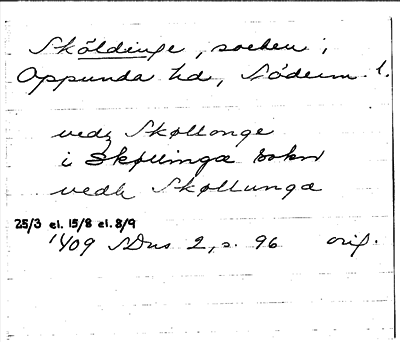 Sköldinge, socken i
Oppunda hd, Söderm. l.
vedh Skøllonge
i Skøllinga sokn
vedh Skøllunga
25/3 el. 15/8 el. 8/9
1409 SDns 2, s. 96 orig.